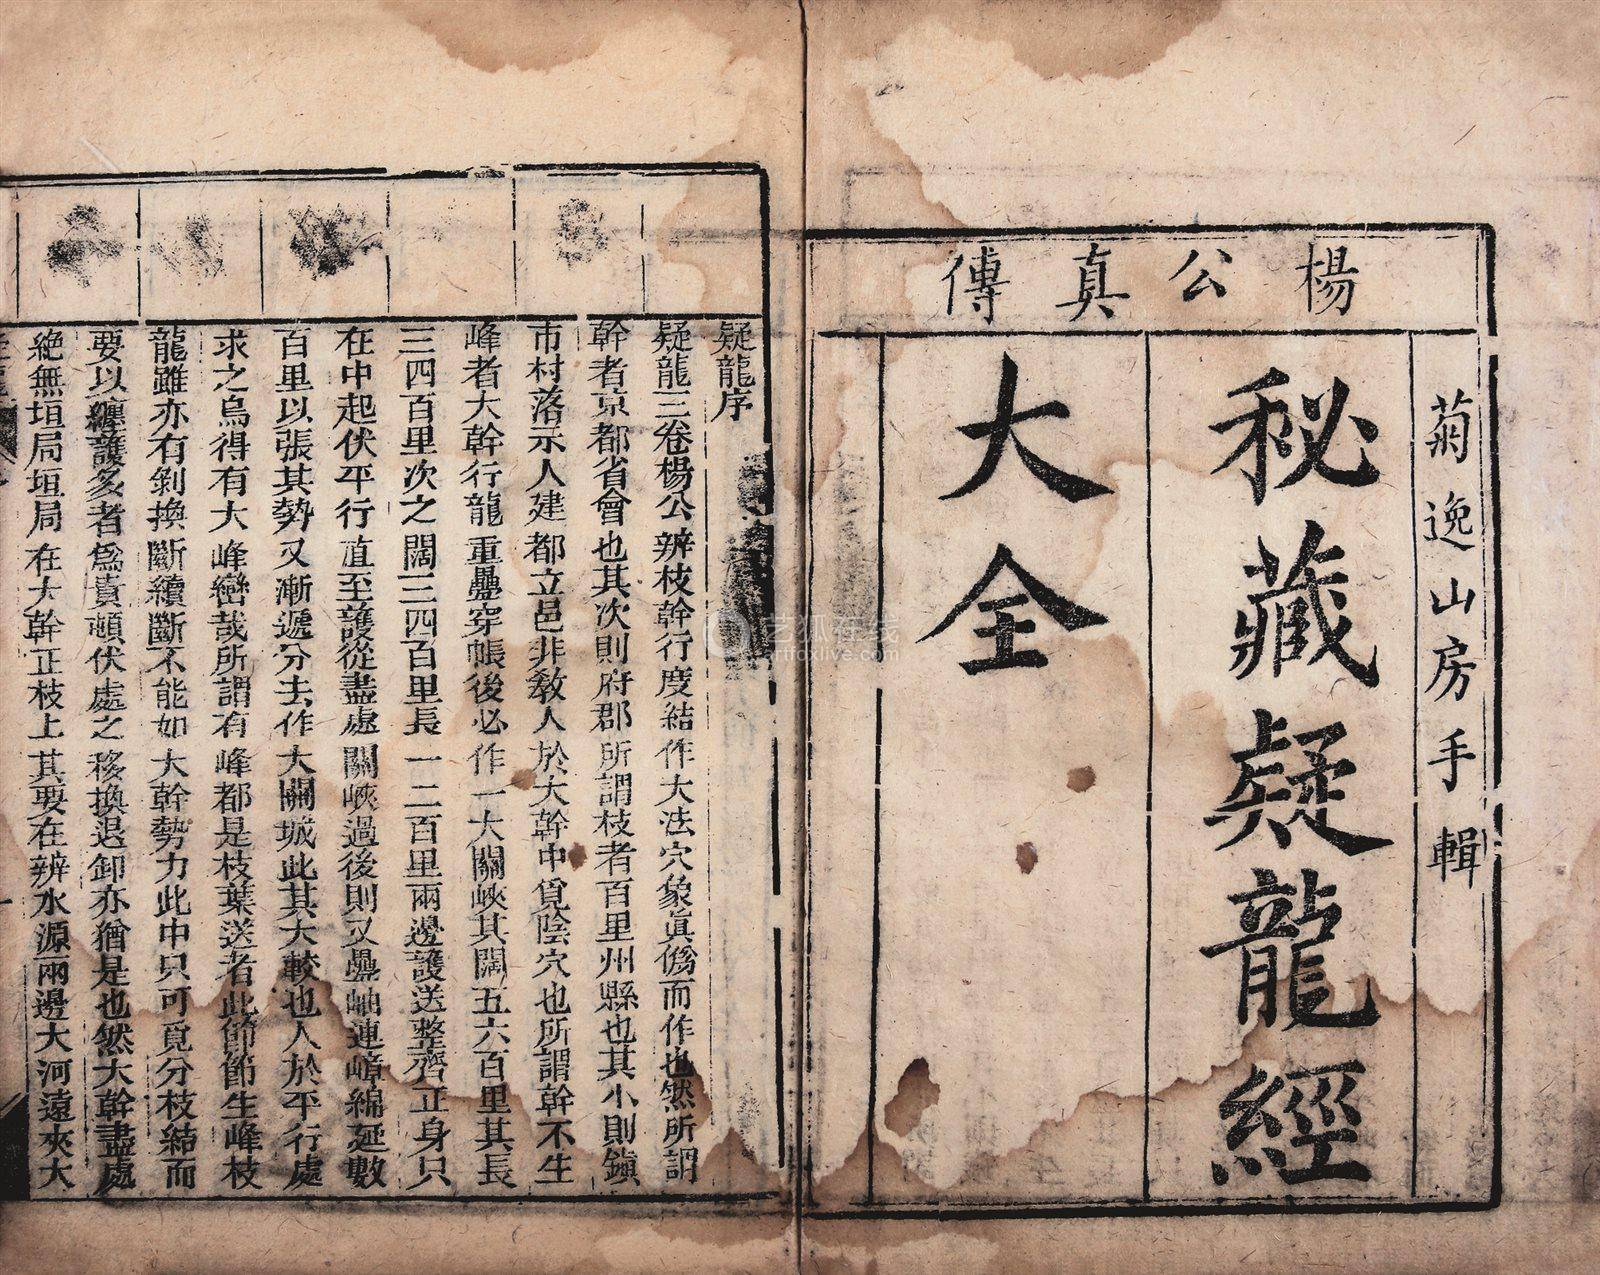 楊公真傳
菊逸山房手輯
秘藏疑龍經
大全
疑龍序
疑龍三卷楊公辨枝幹行度結作大法穴象眞僞而作也然所謂
幹者京都省會也其次則府郡所謂枝者百里州縣也其小則鎮
市村落示人建都立邑非教人於大幹中覓陰穴也所謂幹不生
峰者大幹行龍重疊穿帳後必作一大關峽其闊五六百里其長
三四百里次之闊三四百里長一二百里兩邊護送整齊正身只
在中起伏平行直至護從盡處關峽過後則又疊岫連嶂綿延數
百里以張其勢又漸遞分去作大關城此其大較也人於平行處
求之烏得有大峰巒哉所謂有峰都是枝葉送者此節節生峰枝
龍雖亦有剝換斷續斷不能如大幹勢力此中只可覓分枝結而
要以纏護多者爲貴頓伏處之移換退卸亦猶是也然大幹盡處
絶無垣局垣局在大幹正枝上其要在辨水源兩邊大河遠夾大
艺狐在线
artfoxlive.com